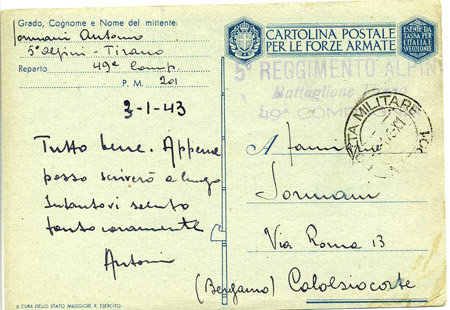 Grado, Cognome e Nome del mittente:
Sormani Antonio
5° Alpini - Tirano
Reparto 49ª Comp.
P. M. 201
3-1-43
Tutto bene. Appena
posso scriverò a lungo
Intantovi saluto
tanto caramente
Antonio
A CURA DELLO STATO MAGGIORE R. ESERCITO
CARTOLINA POSTALE
PER LE FORZE ARMATE
ESENTE DA
TASSA PER
L'ITALIA E
SUE COLONIE
5° REGGIMENTO ALPINI
Battaglione
49ª COMP
POSTA MILITARE
201
A
Sormani
Via Roma 13
(Bergamo) Calolziocorte